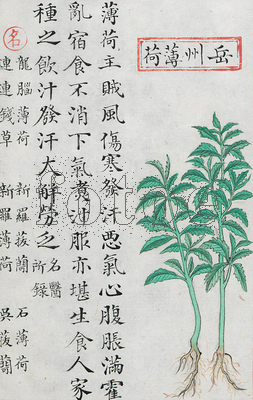 岳州薄荷
薄荷主賊風傷寒發汗惡氣心腹脹滿霍
亂宿食不消下氣煑汁服亦堪生食人家
種之飲汁發汗大解勞乏 名醫所錄
名 龍腦薄荷 新羅菝蕳 石薄荷
連連錢草 新羅薄荷 吳菝蕳